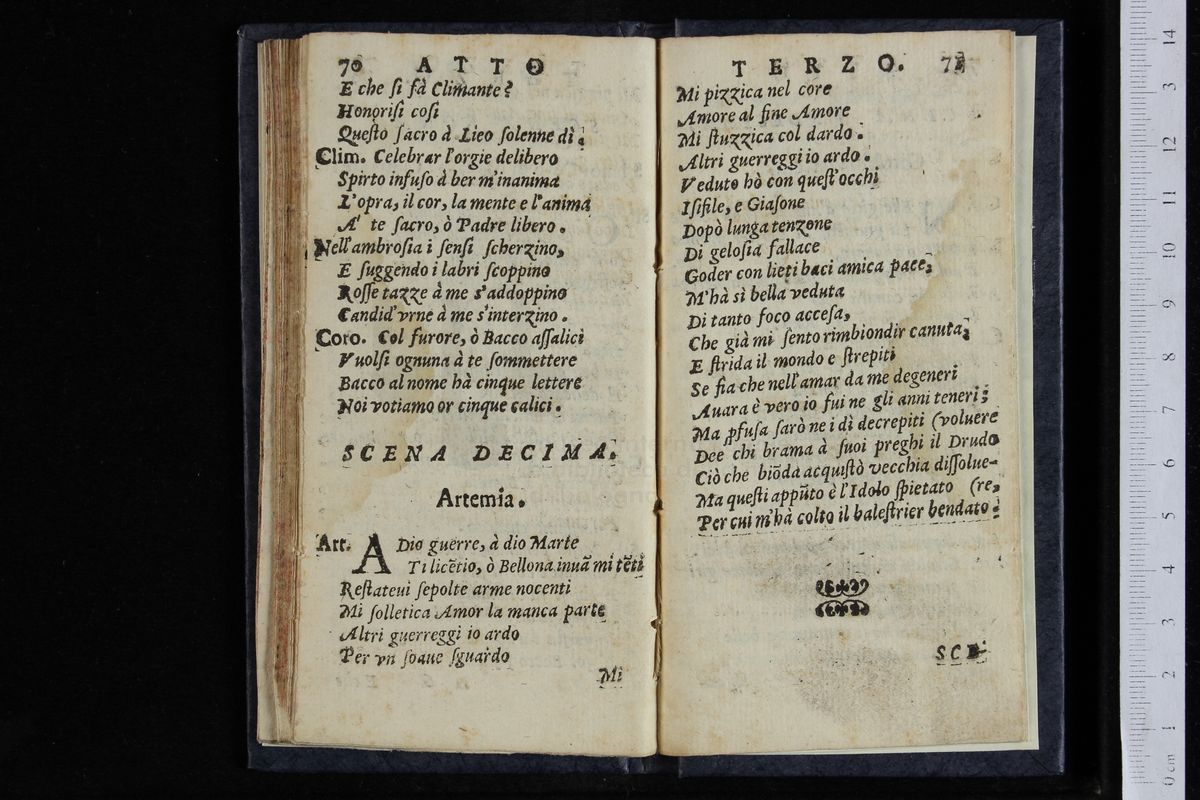 70 ATTO
E che ſi fà Climante?
Honoriſi coſi
Queſto ſacro à Lieo ſolenne dì.
Clim. Celebrar l'orgie delibero
Spirto infuſo à ber m'inanima
L'opra, il cor, la mente e l'anima
A' te ſacro, ò Padre libero.
Nell'ambroſia i ſenſi ſcherzino,
E ſuggendo i labri ſcoppino
Roſſe tazze à me s'addoppino
Candid'vrne à me s'interzino.
Coro. Col furore, ò Bacco aſſalici
Vuolſi ognuna à te ſommettere
Bacco al nome hà cinque lettere
Noi votiamo or cinque calici.
SCENA DECIMA.
Artemia.
Art. ADio guerre, à dio Marte
Ti licẽtio, ò Bellona inuã mi tẽti
Reſtateui ſepolte arme nocenti
Mi ſolletica Amor la manca parte
Altri guerreggi io ardo
Per vn ſoaue ſguardo
Mi
TERZO. 71
Mi pizzica nel core
Amore al fine Amore
Mi ſtuzzica col dardo.
Altri guerreggi io ardo.
Veduto hò con queſt'occhi
Iſifile, e Giaſone
Dopò lunga tenzone
Di geloſia fallace
Goder con lieti baci amica pace,
M'hà sì bella veduta
Di tanto foco acceſa,
Che già mi ſento rimbiondir canuta;
E ſtrida il mondo e ſtrepiti
Se fia che nell'amar da me degeneri
Auara è vero io fui ne gli anni teneri;
Ma ꝓfuſa ſarò ne i dì decrepiti (voluere
Dee chi brama à ſuoi preghi il Drudo
Ciò che biõda acquiſtò vecchia diſſolue-
Ma queſti appũto è l'Idolo ſpietato (re,
Per cui m'hà colto il baleſtrier bendato.
SCE-
0 cm 1 2 3 4 5 6 7 8 9 10 11 12 13 14